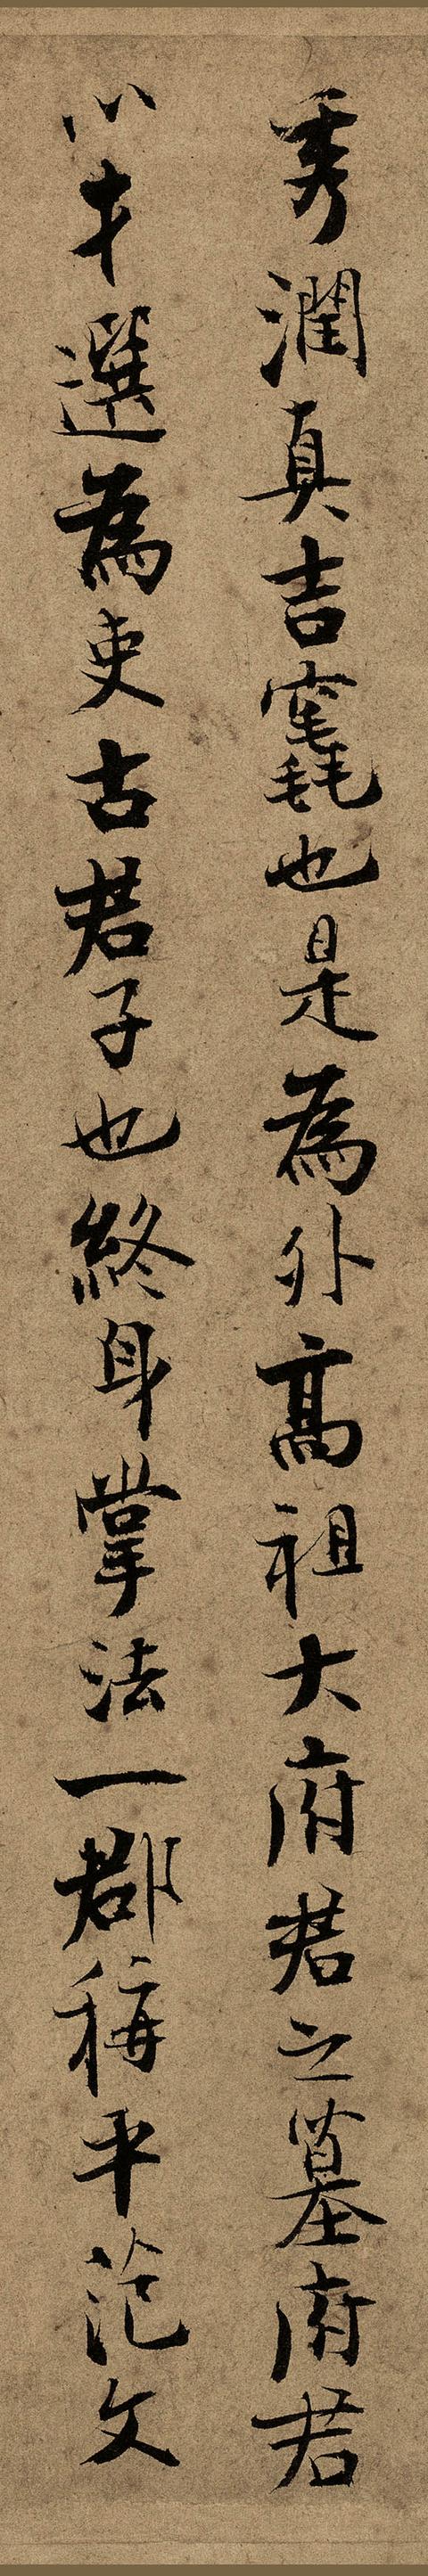 秀潤真吉竁也是為外高祖大府君之墓府君
以才選為吏古君子也終身掌法一郡稱平范文